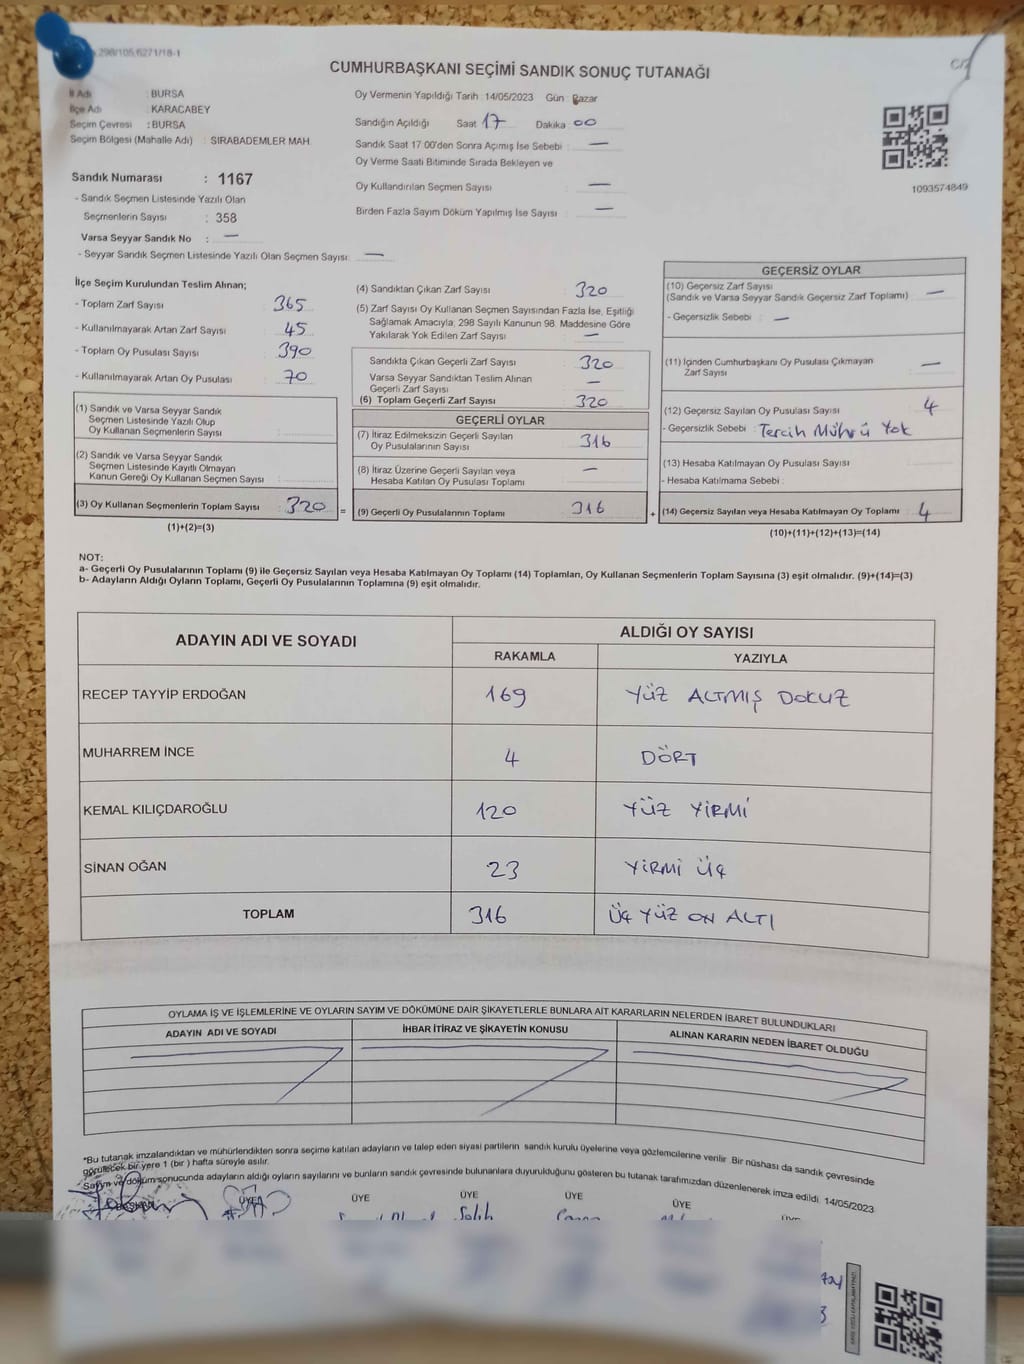 298/105.6271/18-1
C/2
CUMHURBAŞKANI SEÇİMİ SANDIK SONUÇ TUTANAĞI
İl Adı : BURSA
İlçe Adı : KARACABEY
Seçim Çevresi : BURSA
Seçim Bölgesi (Mahalle Adı) : SIRABADEMLER MAH.
Sandık Numarası : 1167
- Sandık Seçmen Listesinde Yazılı Olan
Seçmenlerin Sayısı : 358
Varsa Seyyar Sandık No : —
- Seyyar Sandık Seçmen Listesinde Yazılı Olan Seçmen Sayısı: —
Oy Vermenin Yapıldığı Tarih : 14/05/2023 Gün : Pazar
Sandığın Açıldığı Saat 17 Dakika 00
Sandık Saat 17.00'den Sonra Açılmış İse Sebebi : —
Oy Verme Saati Bitiminde Sırada Bekleyen ve
Oy Kullandırılan Seçmen Sayısı —
Birden Fazla Sayım Döküm Yapılmış İse Sayısı : —
1093574849
İlçe Seçim Kurulundan Teslim Alınan;
- Toplam Zarf Sayısı 365
- Kullanılmayarak Artan Zarf Sayısı 45
- Toplam Oy Pusulası Sayısı 390
- Kullanılmayarak Artan Oy Pusulası 70
(1) Sandık ve Varsa Seyyar Sandık
Seçmen Listesinde Yazılı Olup
Oy Kullanan Seçmenlerin Sayısı :
(2) Sandık ve Varsa Seyyar Sandık
Seçmen Listesinde Kayıtlı Olmayan
Kanun Gereği Oy Kullanan Seçmen Sayısı :
(3) Oy Kullanan Seçmenlerin Toplam Sayısı : 320 =
(1)+(2)=(3)
(4) Sandıktan Çıkan Zarf Sayısı : 320
(5) Zarf Sayısı Oy Kullanan Seçmen Sayısından Fazla İse, Eşitliği
Sağlamak Amacıyla, 298 Sayılı Kanunun 98. Maddesine Göre
Yakılarak Yok Edilen Zarf Sayısı : —
Sandıkta Çıkan Geçerli Zarf Sayısı : 320
Varsa Seyyar Sandıktan Teslim Alınan
Geçerli Zarf Sayısı : —
(6) Toplam Geçerli Zarf Sayısı : 320
GEÇERLİ OYLAR
(7) İtiraz Edilmeksizin Geçerli Sayılan
Oy Pusulalarının Sayısı : 316
(8) İtiraz Üzerine Geçerli Sayılan veya
Hesaba Katılan Oy Pusulası Toplamı : —
(9) Geçerli Oy Pusulalarının Toplamı : 316 +
GEÇERSİZ OYLAR
(10) Geçersiz Zarf Sayısı
(Sandık ve Varsa Seyyar Sandık Geçersiz Zarf Toplamı) : —
- Geçersizlik Sebebi : —
(11) İçinden Cumhurbaşkanı Oy Pusulası Çıkmayan
Zarf Sayısı : —
(12) Geçersiz Sayılan Oy Pusulası Sayısı : 4
- Geçersizlik Sebebi : Tercih Mührü Yok
(13) Hesaba Katılmayan Oy Pusulası Sayısı :
- Hesaba Katılmama Sebebi :
(14) Geçersiz Sayılan veya Hesaba Katılmayan Oy Toplamı : 4
(10)+(11)+(12)+(13)=(14)
NOT:
a- Geçerli Oy Pusulalarının Toplamı (9) ile Geçersiz Sayılan veya Hesaba Katılmayan Oy Toplamı (14) Toplamları, Oy Kullanan Seçmenlerin Toplam Sayısına (3) eşit olmalıdır. (9)+(14)=(3)
b- Adayların Aldığı Oyların Toplamı, Geçerli Oy Pusulalarının Toplamına (9) eşit olmalıdır.
ADAYIN ADI VE SOYADI ALDIĞI OY SAYISI
RAKAMLA YAZIYLA
RECEP TAYYİP ERDOĞAN 169 YÜZ ALTMIŞ DOKUZ
MUHARREM İNCE 4 DÖRT
KEMAL KILIÇDAROĞLU 120 YÜZ YİRMİ
SİNAN OĞAN 23 YİRMİ ÜÇ
TOPLAM 316 ÜÇ YÜZ ON ALTI
OYLAMA İŞ VE İŞLEMLERİNE VE OYLARIN SAYIM VE DÖKÜMÜNE DAİR ŞİKAYETLERLE BUNLARA AİT KARARLARIN NELERDEN İBARET BULUNDUKLARI
ADAYIN ADI VE SOYADI İHBAR İTİRAZ VE ŞİKAYETİN KONUSU ALINAN KARARIN NEDEN İBARET OLDUĞU
*Bu tutanak imzalandıktan ve mühürlendikten sonra seçime katılan adayların ve talep eden siyasi partilerin sandık kurulu üyelerine veya gözlemcilerine verilir. Bir nüshası da sandık çevresinde
görülecek bir yere 1 (bir ) hafta süreyle asılır.
Sayım ve döküm sonucunda adayların aldığı oyların sayılarını ve bunların sandık çevresinde bulunanlara duyurulduğunu gösteren bu tutanak tarafımızdan düzenlenerek imza edildi. 14/05/2023
BAŞKAN ÜYE ÜYE ÜYE ÜYE ÜYE
Salih